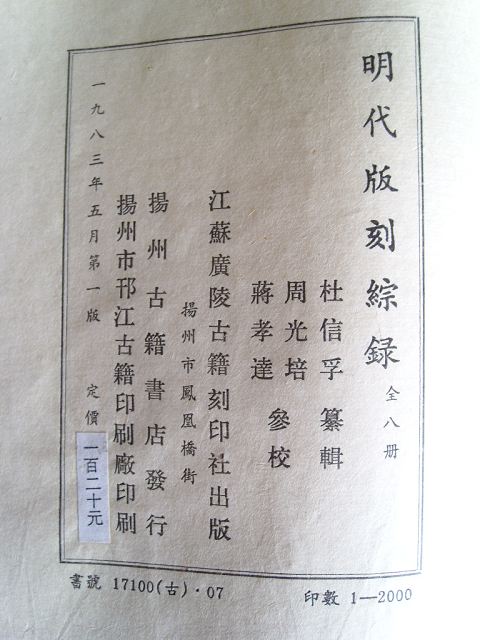 明代版刻綜録 全八册
杜信孚 纂輯
周光培
蔣孝達 參校
江蘇廣陵古籍刻印社出版
揚州市鳳凰橋街
揚州古籍書店發行
揚州市邗江古籍印刷廠印刷
一九八三年五月第一版 定價 一百二十元
書號 17100(古)·07
印數 1—2000